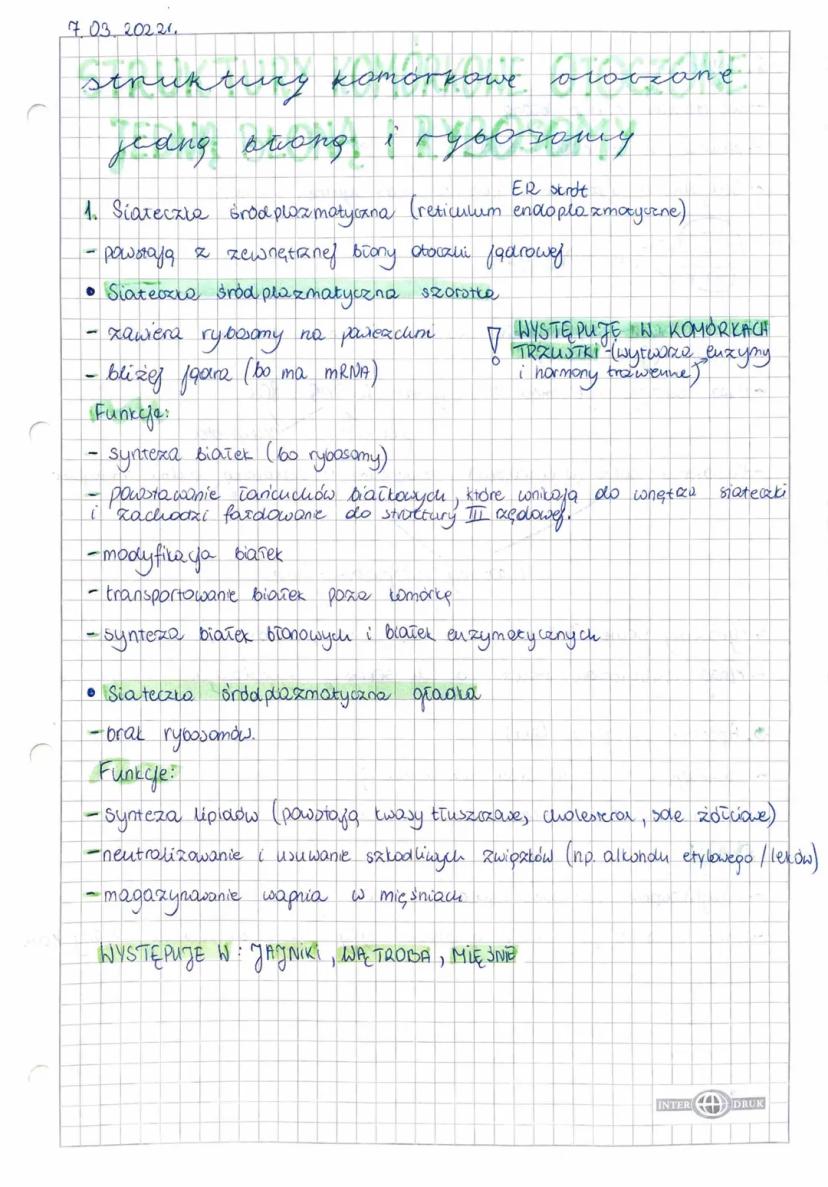 7.03.2022r.
struktury komórkowe otoczone
jedną błoną i rybosomy
ER skrót
1. Siateczka śródplazmatyczna (reticulum endoplazmatyczne)
- powstają z zewnętrznej błony otoczki jądrowej
• Siateczka śródplazmatyczna szorstka
- zawiera rybosomy na powierzchni
- bliżej jądra (bo ma mRNA)
! WYSTĘPUJE W KOMÓRKACH
TRZUSTKI - (wytwarza enzymy
i hormony trawienne)
Funkcje:
- synteza białek (bo rybosomy)
- powstawanie łańcuchów białkowych, które wnikają do wnętrza siateczki
i zachodzi fałdowanie do struktury III rzędowej.
- modyfikacja białek
- transportowanie białek poza komórkę
- synteza białek błonowych i białek enzymatycznych
• Siateczka śródplazmatyczna gładka
- brak rybosomów.
Funkcje:
- synteza lipidów (powstają kwasy tłuszczowe, cholesterol, sole żółciowe)
- neutralizowanie i usuwanie szkodliwych związków (np. alkoholu etylowego / leków)
- magazynowanie wapnia w mięśniach
WYSTĘPUJE W: JAJNIKI, WĄTROBA, MIĘŚNIE
INTER DRUK